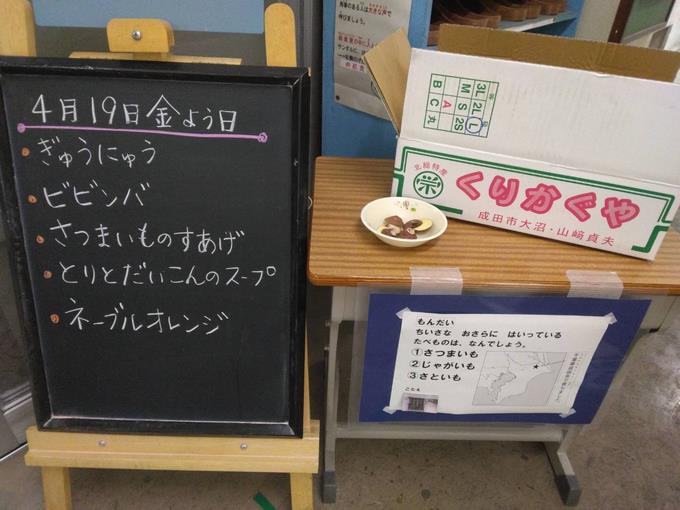 4月19日金よう日
ぎゅうにゅう
ビビンバ
さつまいものすあげ
とりとだいこんのスープ
ネーブルオレンジ
3L 2L L
M S 2S
A
B C 丸
北総特産
栄
くりかぐや
成田市大沼・山﨑貞夫
もんだい
ちいさな おさらに はいっている
たべものは、なんでしょう。
①さつまいも
②じゃがいも
③さといも
こたえ